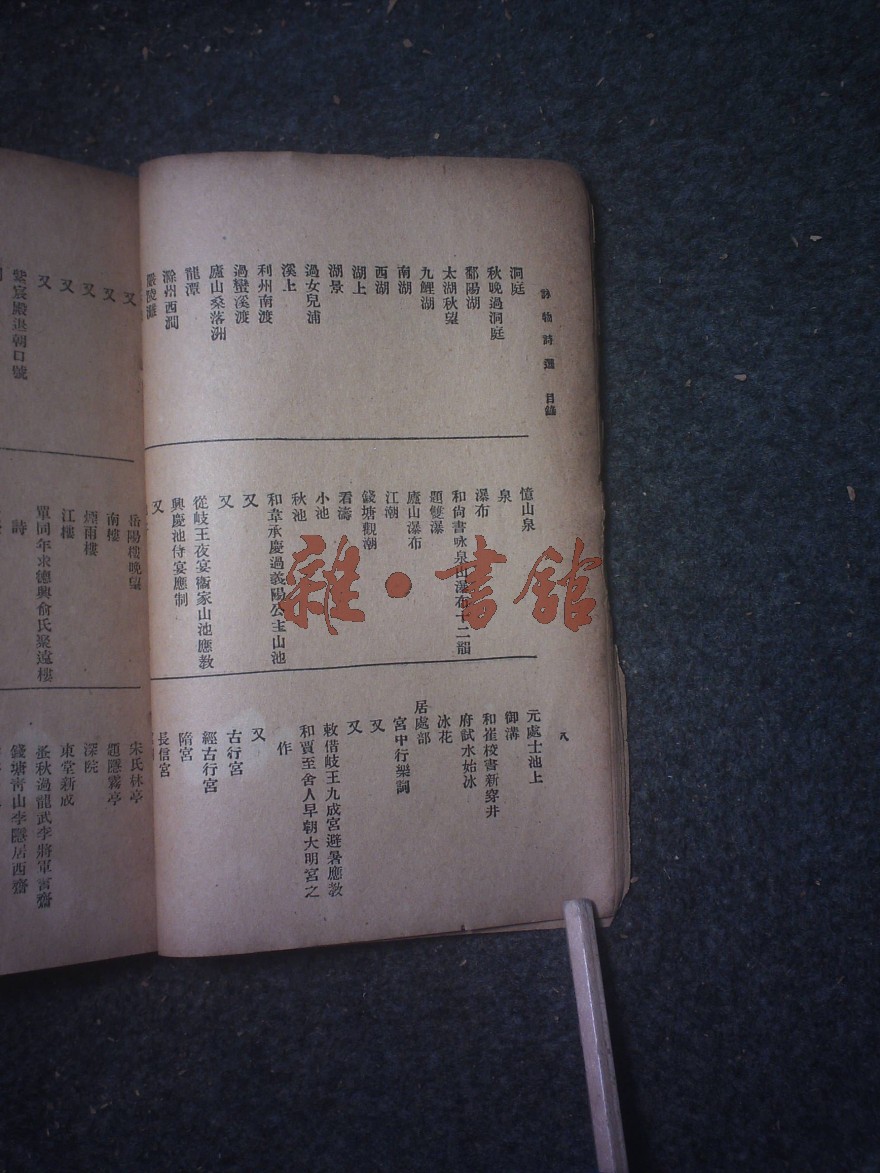 詠物詩選 目錄
八
洞庭
秋晚過洞庭
鄱陽湖
太湖秋望
九鯉湖
南湖
西湖
湖上
湖景
過女兒浦
溪上
利州南渡
過蠻溪渡
廬山桑落洲
龍潭
滁州西澗
嚴陵灘
憶山泉
泉
瀑布
和尙書咏泉山瀑布十二韻
題雙瀑
廬山瀑布
江潮
錢塘觀潮
看濤
小池
秋池
和韋承慶過義陽公主山池
又
又
從岐王夜宴衞家山池應敎
興慶池侍宴應制
又
元處士池上
御溝
和崔校書新穿井
府試水始冰
冰花
居處部
宮中行樂詞
又
又
敕借岐王九成宮避暑應敎
和賈至舍人早朝大明宮之
作
又
古行宮
經古行宮
隋宮
長信宮
又
又
又
又
又
紫宸殿退朝口號
岳陽樓晚望
南樓
煙雨樓
江樓
單同年求德興俞氏聚遠樓
詩
宋氏林亭
題隱霧亭
深院
東堂新成
錢塘靑山李隱居西齋
雜·書館